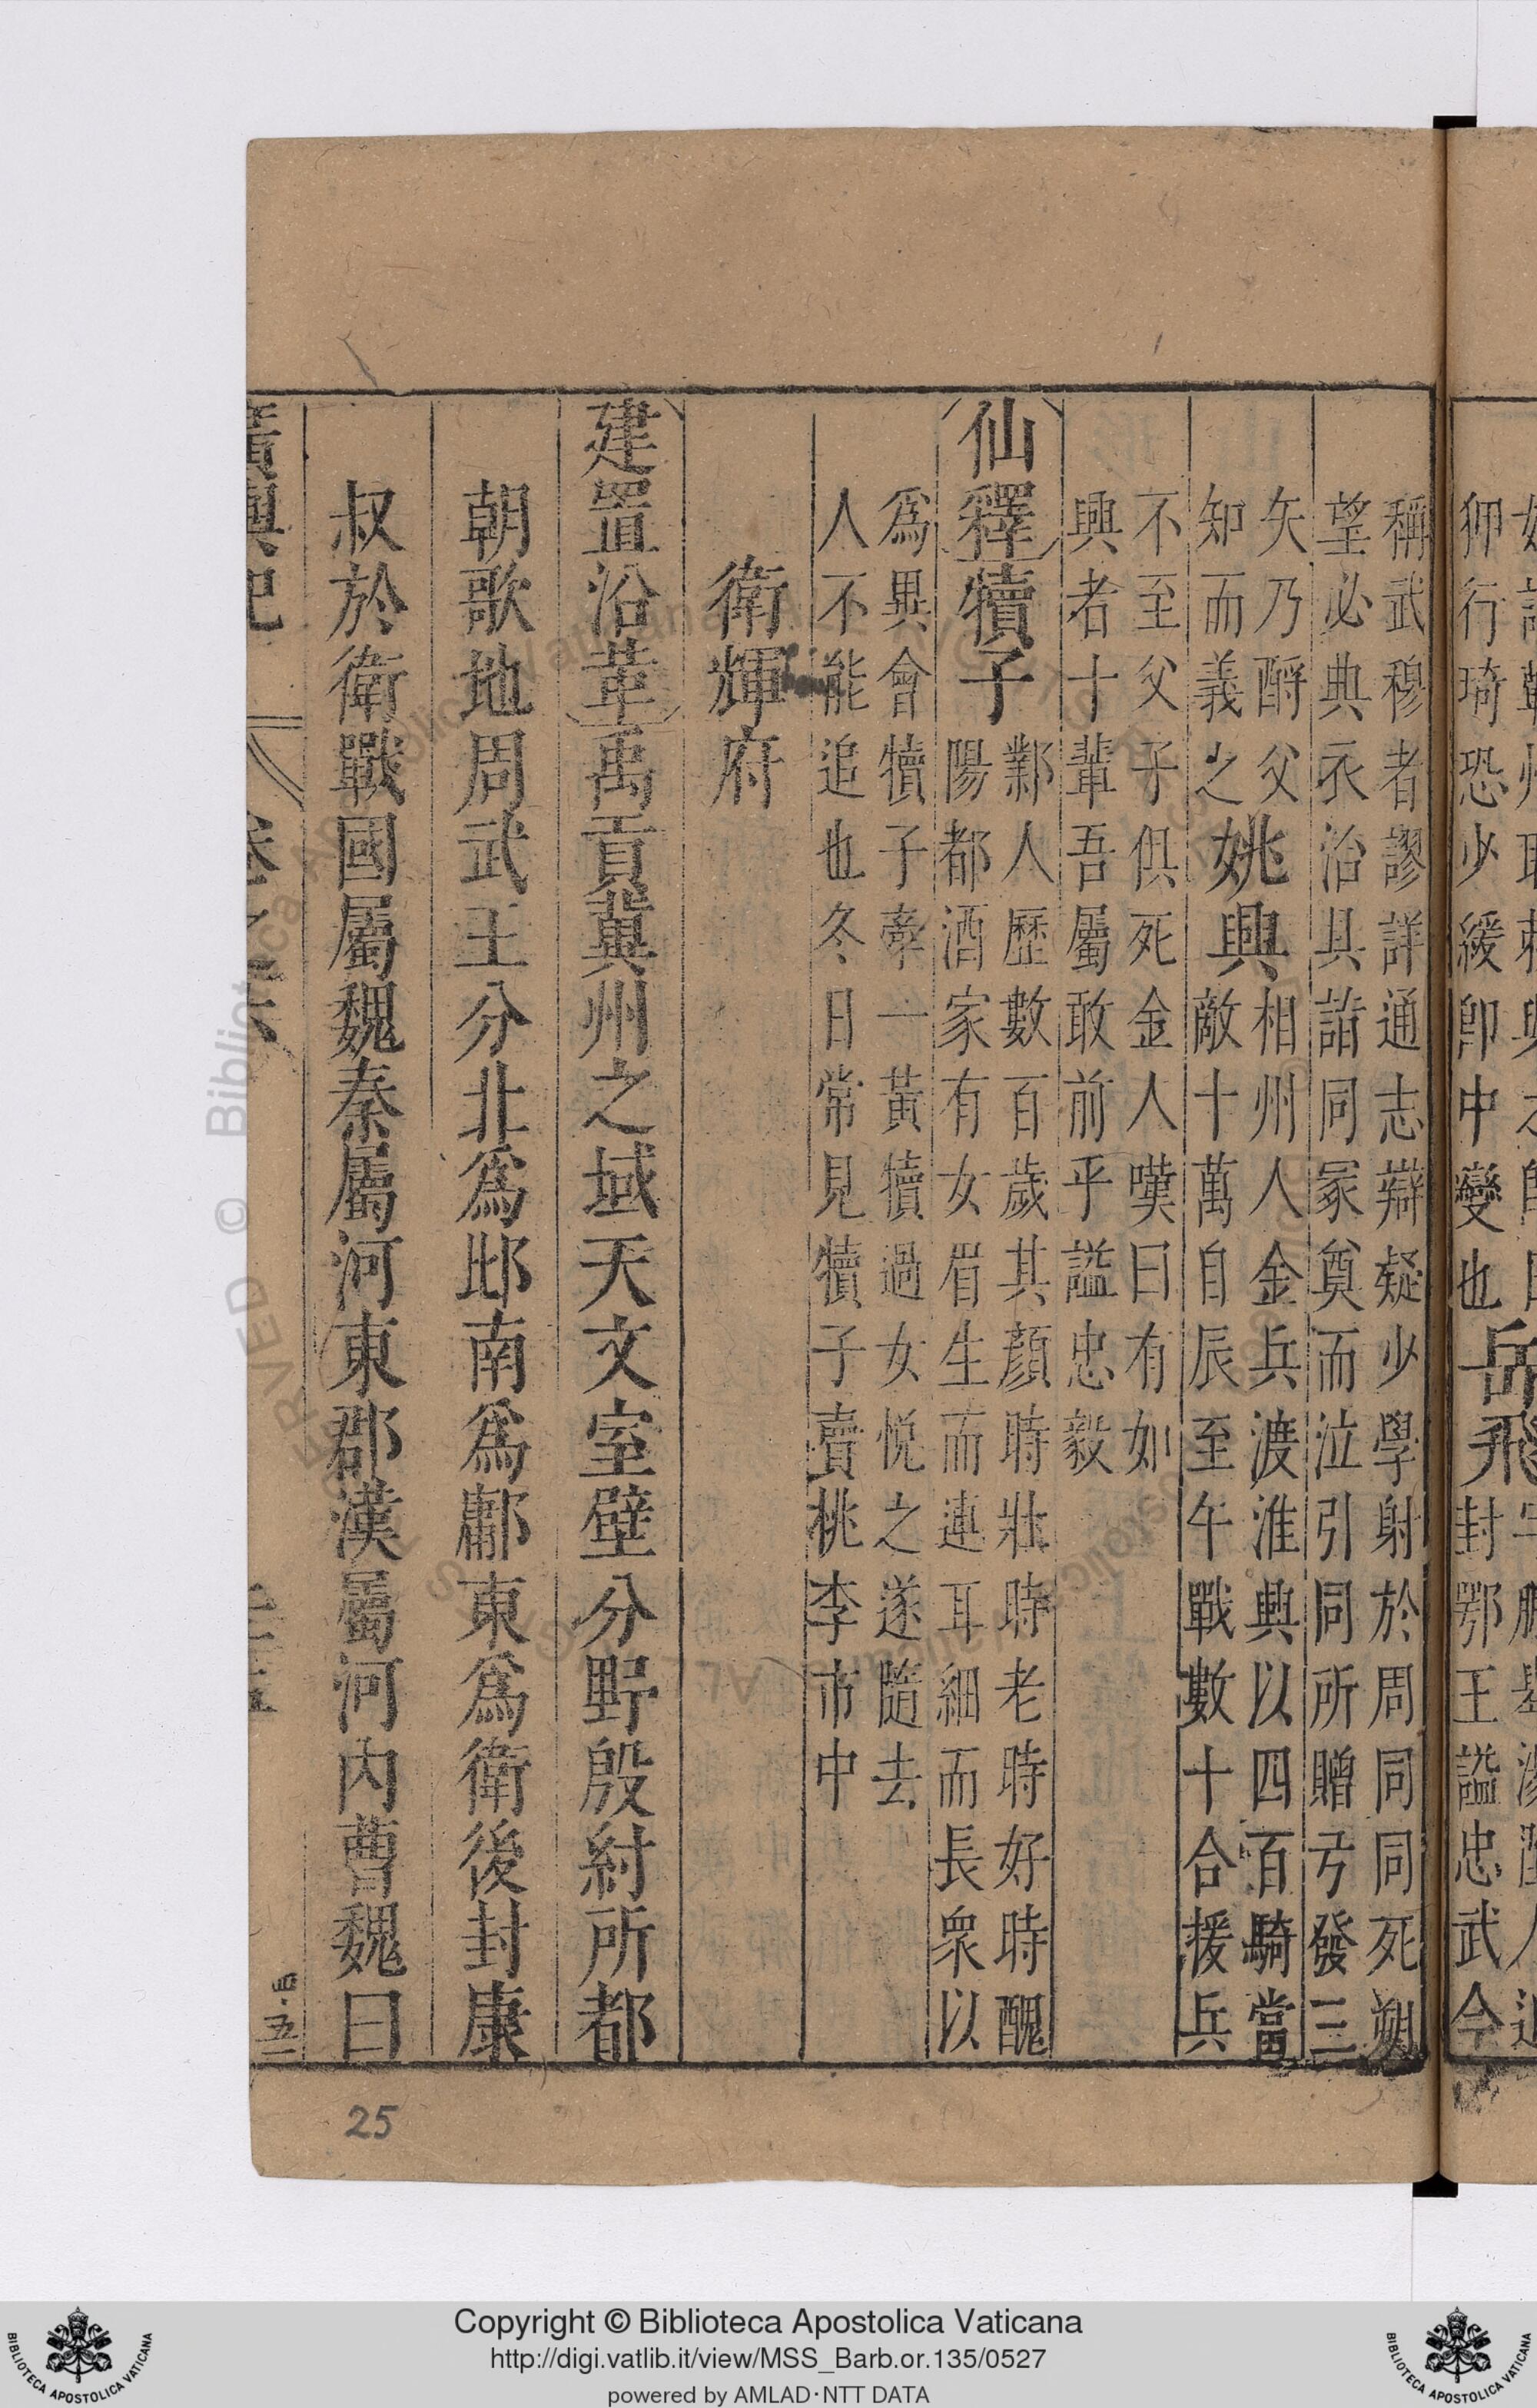 仰行琦恐少緩卽中變也岳飛封鄂王謚忠武今
稱武穆者謬詳通志辯疑少學射於周同同死朔
望必典衣治具詣同冢奠而泣引同所贈弓發三
矢乃酹父
知而義之
姚興
相州人金兵渡淮興以四百騎當
敵十萬自辰至午戰數十合援兵
不至父子俱死金人嘆曰有如
興者十輩吾屬敢前乎謚忠毅
仙釋犢子
鄴人歷數百歲其顏時壯時老時好時醜
陽都酒家有女眉生而連耳細而長衆以
爲異會犢子牽一黃犢過女悅之遂隨去
人不能追也冬日常見犢子賣桃李市中
衛輝府
建置沿革禹貢冀州之域天文室壁分野殷紂所都
朝歌地周武王分北爲邶南爲鄘東爲衛後封康
叔於衛戰國屬魏秦屬河東郡漢屬河內曹魏曰
廣輿記
25
© Biblioteca Apostolica Vaticana
Copyright © Biblioteca Apostolica Vaticana
http://digi.vatlib.it/view/MSS_Barb.or.135/0527
powered by AMLAD·NTT DATA
BIBLIOTECA APOSTOLICA VATICANA
BIBLIOTECA APOSTOLICA VATICANA